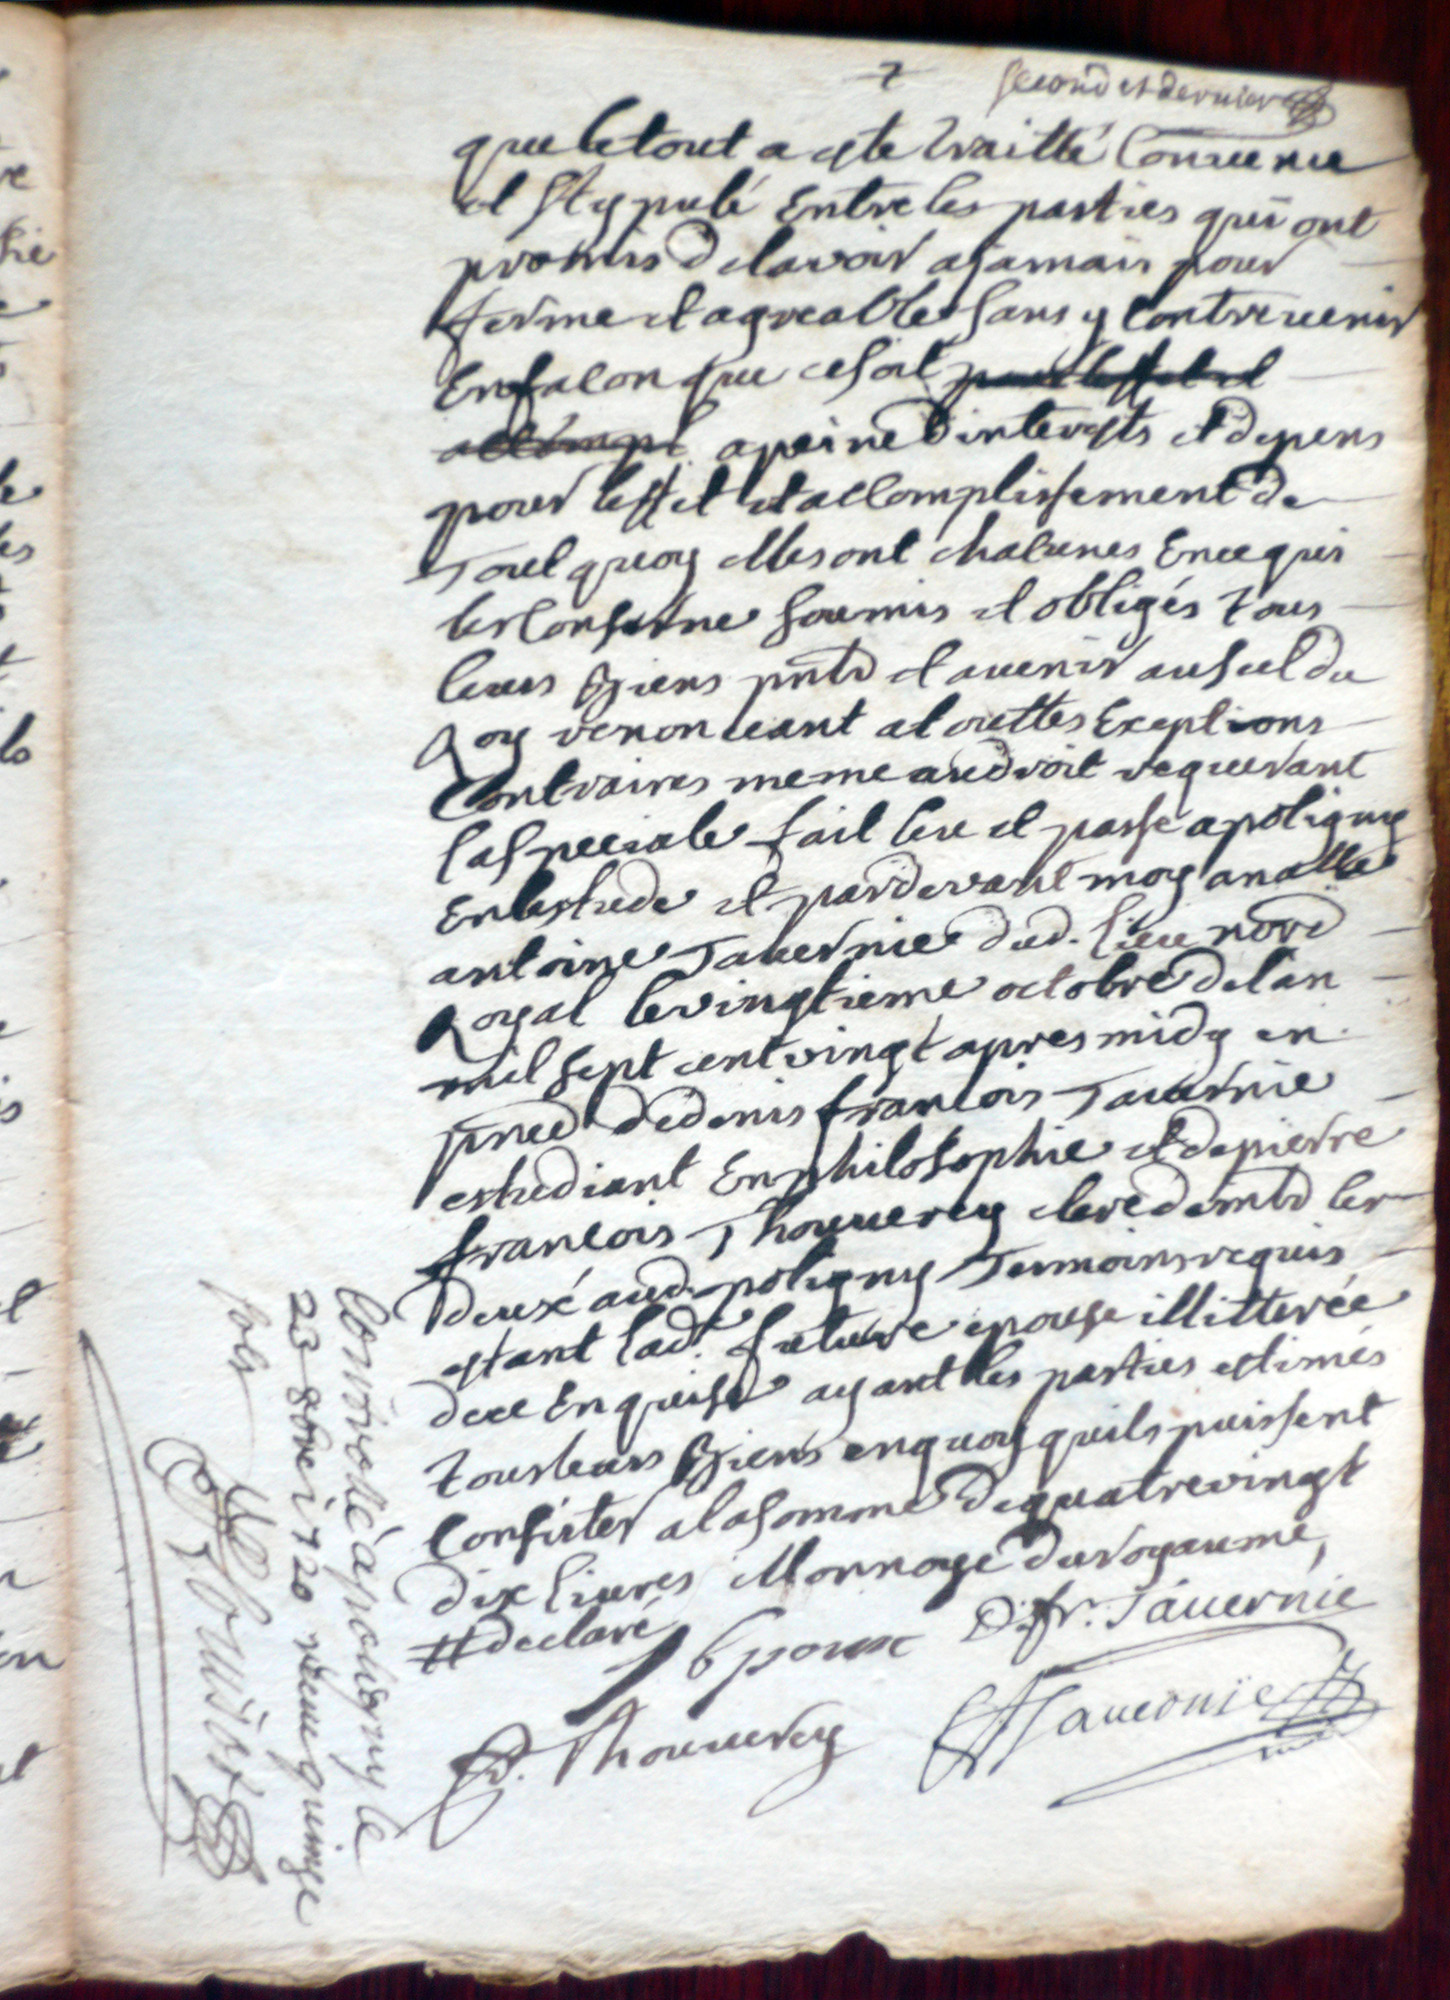 2
second et dernier
que le tout a este traitté convenu
et stypulé entre les parties qui ont
promis de lavoir a jamais pour
ferme et agreable sans y contrevenir
en facon que ce soit pour leffet et
accompl a peine dinterests et depens
pour leffet et accomplissement de
tout quoy elles ont chacunes en ce qui
les conserne soumis et obligés tous
leurs biens pnts et avenir au scel du
Roy renonceant a touttes exeptions
contraires meme au droit requerant
la speciale fait leu et passé a poligny
en lestude et pardevant moy anatle
antoine Tavernie dud. lieu nore
Royal le vingtieme octobre de lan
mil sept cent vingt apres midy en
pnce de denis francois Tavernie
estudiant en philosophie et de pierre
francois Thouverey clerc demts les
deux aud. poligny Temoins requis
estant lad. future epouse illitterée
dece enquise ayant les parties estimés
tous leurs biens en quoy quils puissent
consister a la somme de quatre vingt
dix livres Monnoye du royaume,
# declaré
epoux
D. fr. Tavernie
P. Thouverey
A A Tavernie
Controolé a poligny le
23 8bre 1720 receu quinze
sols